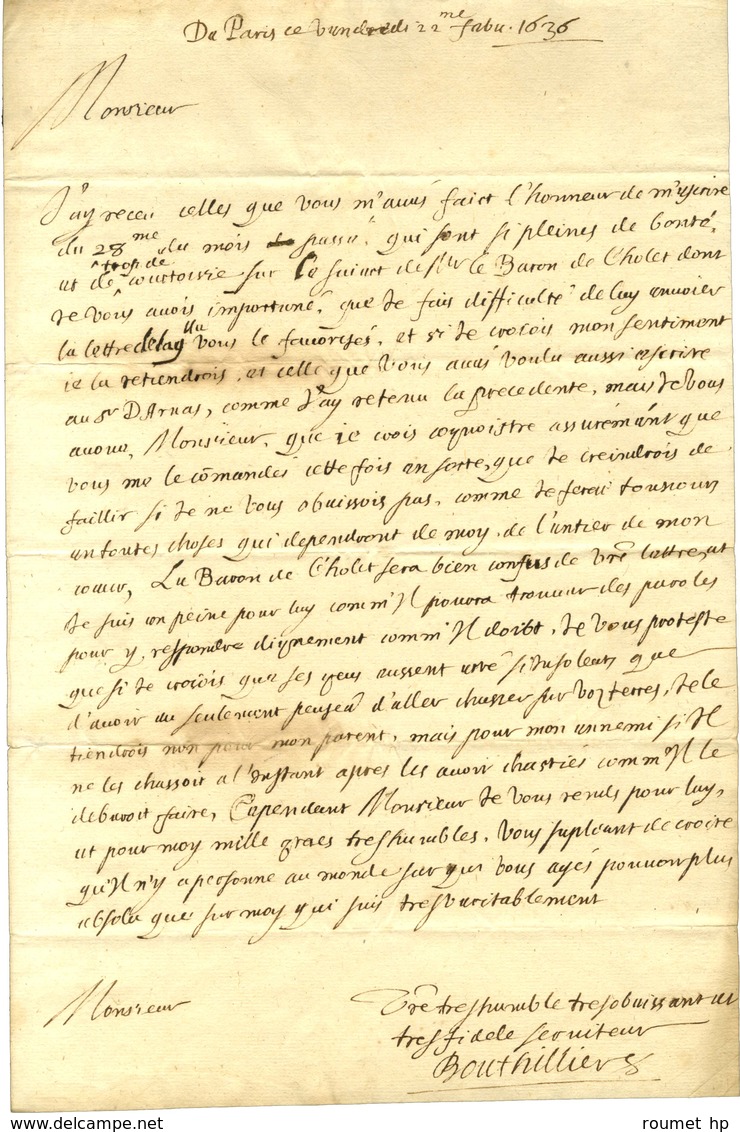 De Paris ce vendredi 22me febv. 1636
Monsieur
J'ay receu celles que vous m'avés faict l'honneur de m'escrire
du 28me du mois passé, qui sont si pleines de bonté,
et de trop de courtoisie sur le suiect de Mr le Baron de Cholet dont
je vous avois importuné, que je fais difficulté de luy envoier
la lettre de laqlle vous le favorisés, et si je croiois mon sentiment
je la retiendrois, et celle que vous avés voulu aussi escrire
au Sr D'Arnas, comme J'ay retenu la precedente, mais Je vous
avoue, Monsieur, que je crois cognoistre assurémént que
vous me le comandés cette fois en sorte, que je creindrois de
faillir si Je ne vous obeissois pas, comme Je feray tousiours
en toutes choses qui dependront de moy, de l'entier de mon
coeur, Le Baron de Cholet sera bien confus de vre lettre, et
Je suis en peine pour luy comm' Il pourra trouver des paroles
pour y respondre dignement comm' Il doibt, Je vous proteste
que si Je croiois que ses gens eussent esté si insolents que
d'avoir eu seulement pensea d'aller chasser sur voz terres, Je le
tiendrois non pour mon parent, mais pour mon ennemi si Il
ne les chassoit a l'Instant apres les avoir chastiés comm' Il le
debvroit faire, Cependant Monsieur Je vous rends pour luy,
et pour moy mille graces treshumbles, vous supliant de croire
qu'Il n'y a personne au monde sur qui vous ayés pouvoir plus
absolu que sur moy qui suis tresveritablement
Monsieur
Vre treshumble tresobeissant et
tresfidele serviteur
Bouthillier
roumet hp